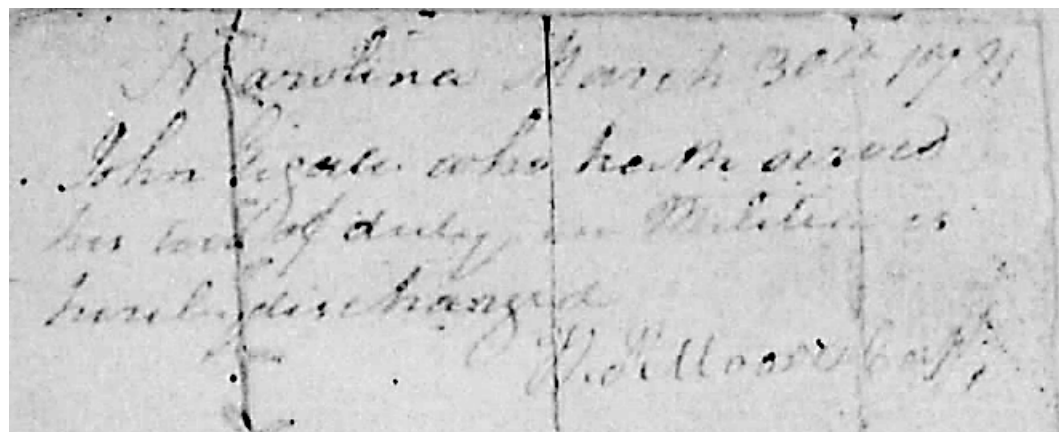 N Carolina March 30th 1781
John who hath served
his tour of duty in Militia is
hereby discharged
Moore Capt